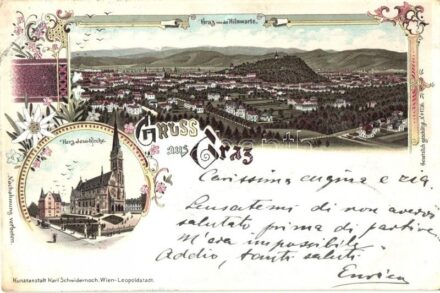 Graz von der Hilmwarte.
Gruss
aus
Graz
Herz-Jesu-Kirche.
Nachahmung verboten.
Carissima cugina e zia
Pensatemi di non avervi
salutato prima di partire
m'era impossibile
Addio, tanti saluti
Enrica
Kunstanstalt Karl Schwidernoch, Wien-Leopoldstadt.